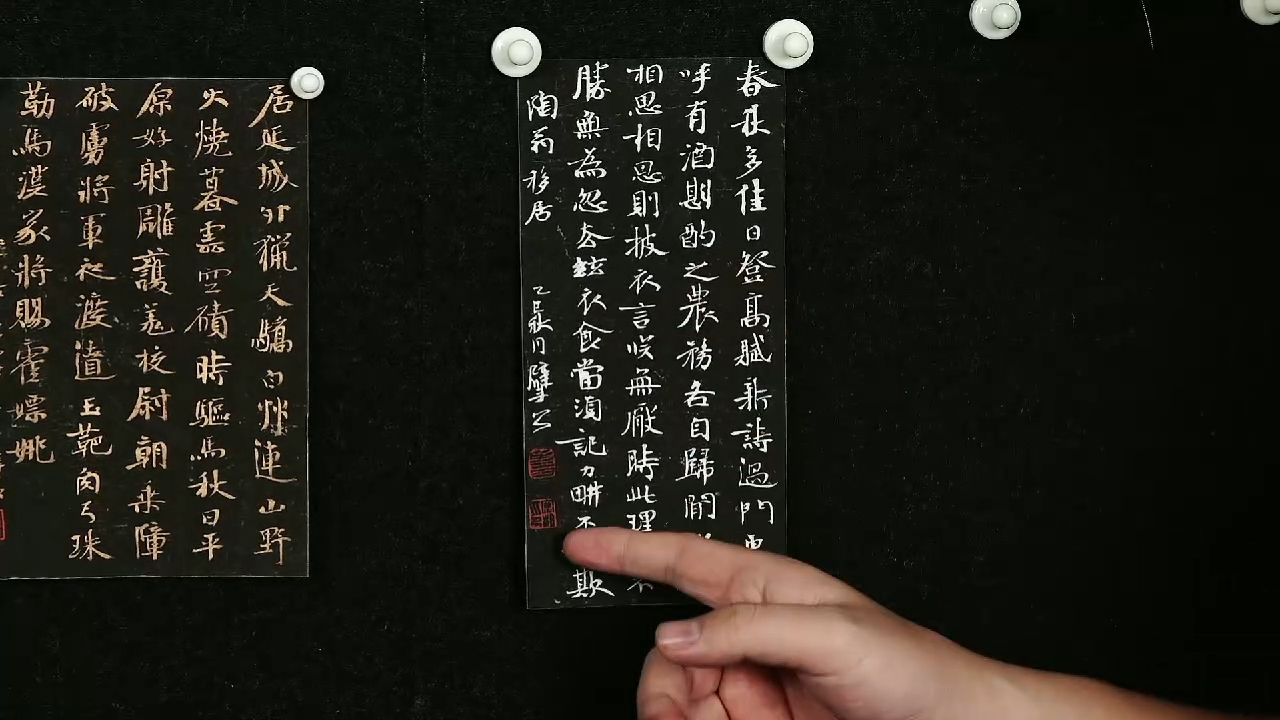 春秋多佳日登高賦新詩過門更
呼有酒斟酌之農務各自歸閒
相思相思則披衣言笑無厭時此理不
勝無為忽去茲衣食當須記力耕不欺
陶翁移居
居延城外獵天驕白草連山野
火燒暮雲空磧時驅馬秋日平
原好射雕護羌校尉朝乘障
破虜將軍夜渡遼玉靶角弓珠
勒馬漢家將賜霍嫖姚